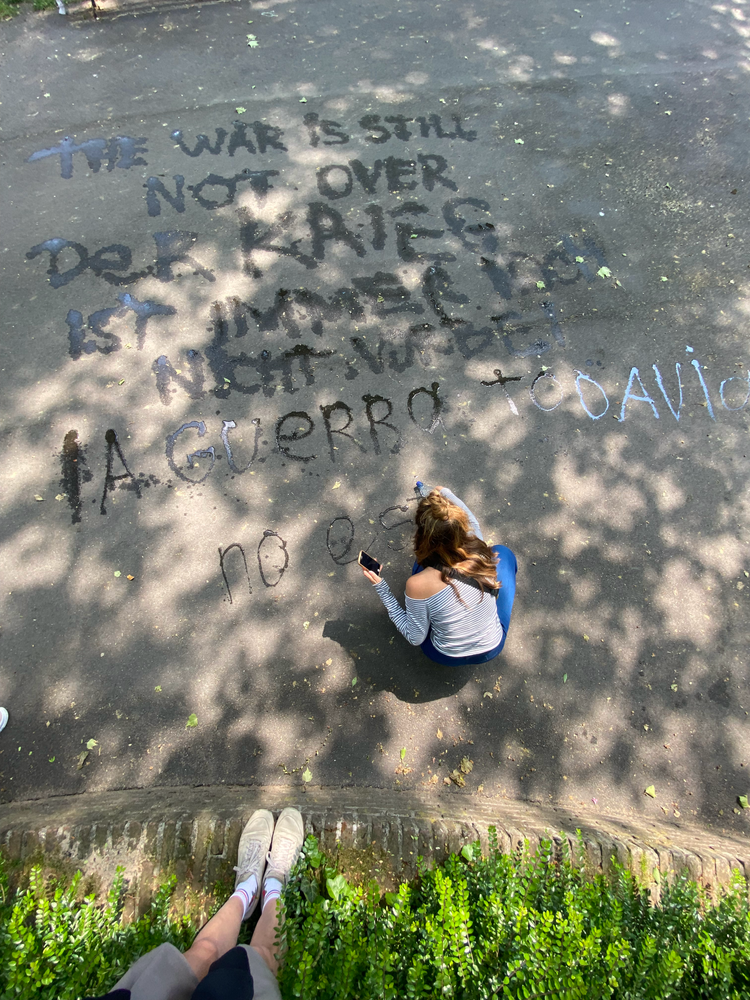 THE WAR IS STILL
NOT OVER
DER KRIEG
IST IMMER NOCH
NICHT VORBEI
lA GUERRA TODAVIA
no es